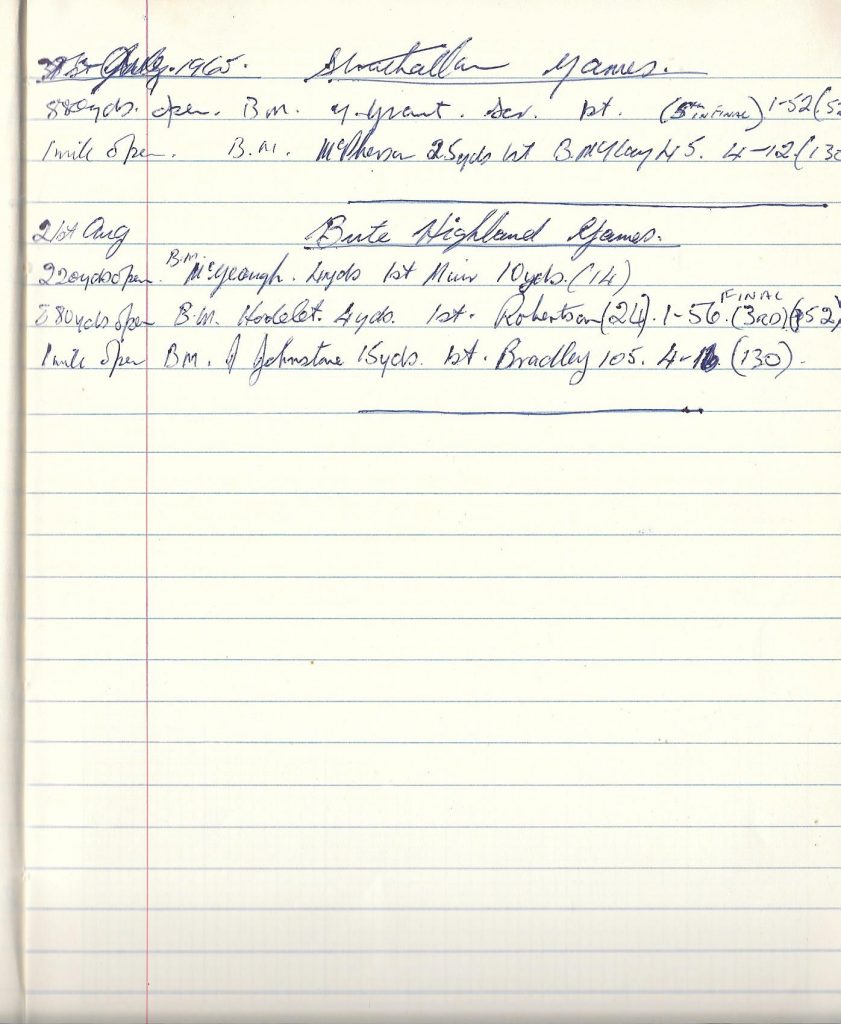 31st July. 1965. Strathallan Games.
880yds. open. B.M. G. Grant. Scr. 1st. (5th IN FINAL) 1-52 (52
1 mile open. B.M. McPherson 25yds 1st B. McClay 45. 4-12 (130
21st Aug Bute Highland Games.
220yds open. B.M. McGeough. 4yds 1st Muir 10yds. (14)
880yds open B.M. Hodelet. 4yds. 1st. Robertson (24). 1-56. FINAL (3RD) (52)
1 mile open B.M. J Johnstone 15yds. 1st. Bradley 105. 4-16. (130).